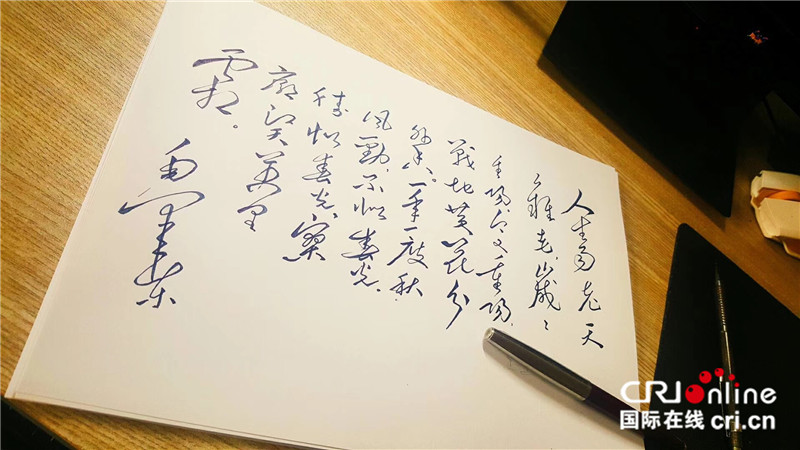 人生易老天
难老,歲々
重陽,今又重陽,
戰地黄花分
外香。一年一度秋
风勁,不似春光。
勝似春光,寥
廓江天萬里
霜。
毛泽东
CRIonline
国际在线 cri.cn